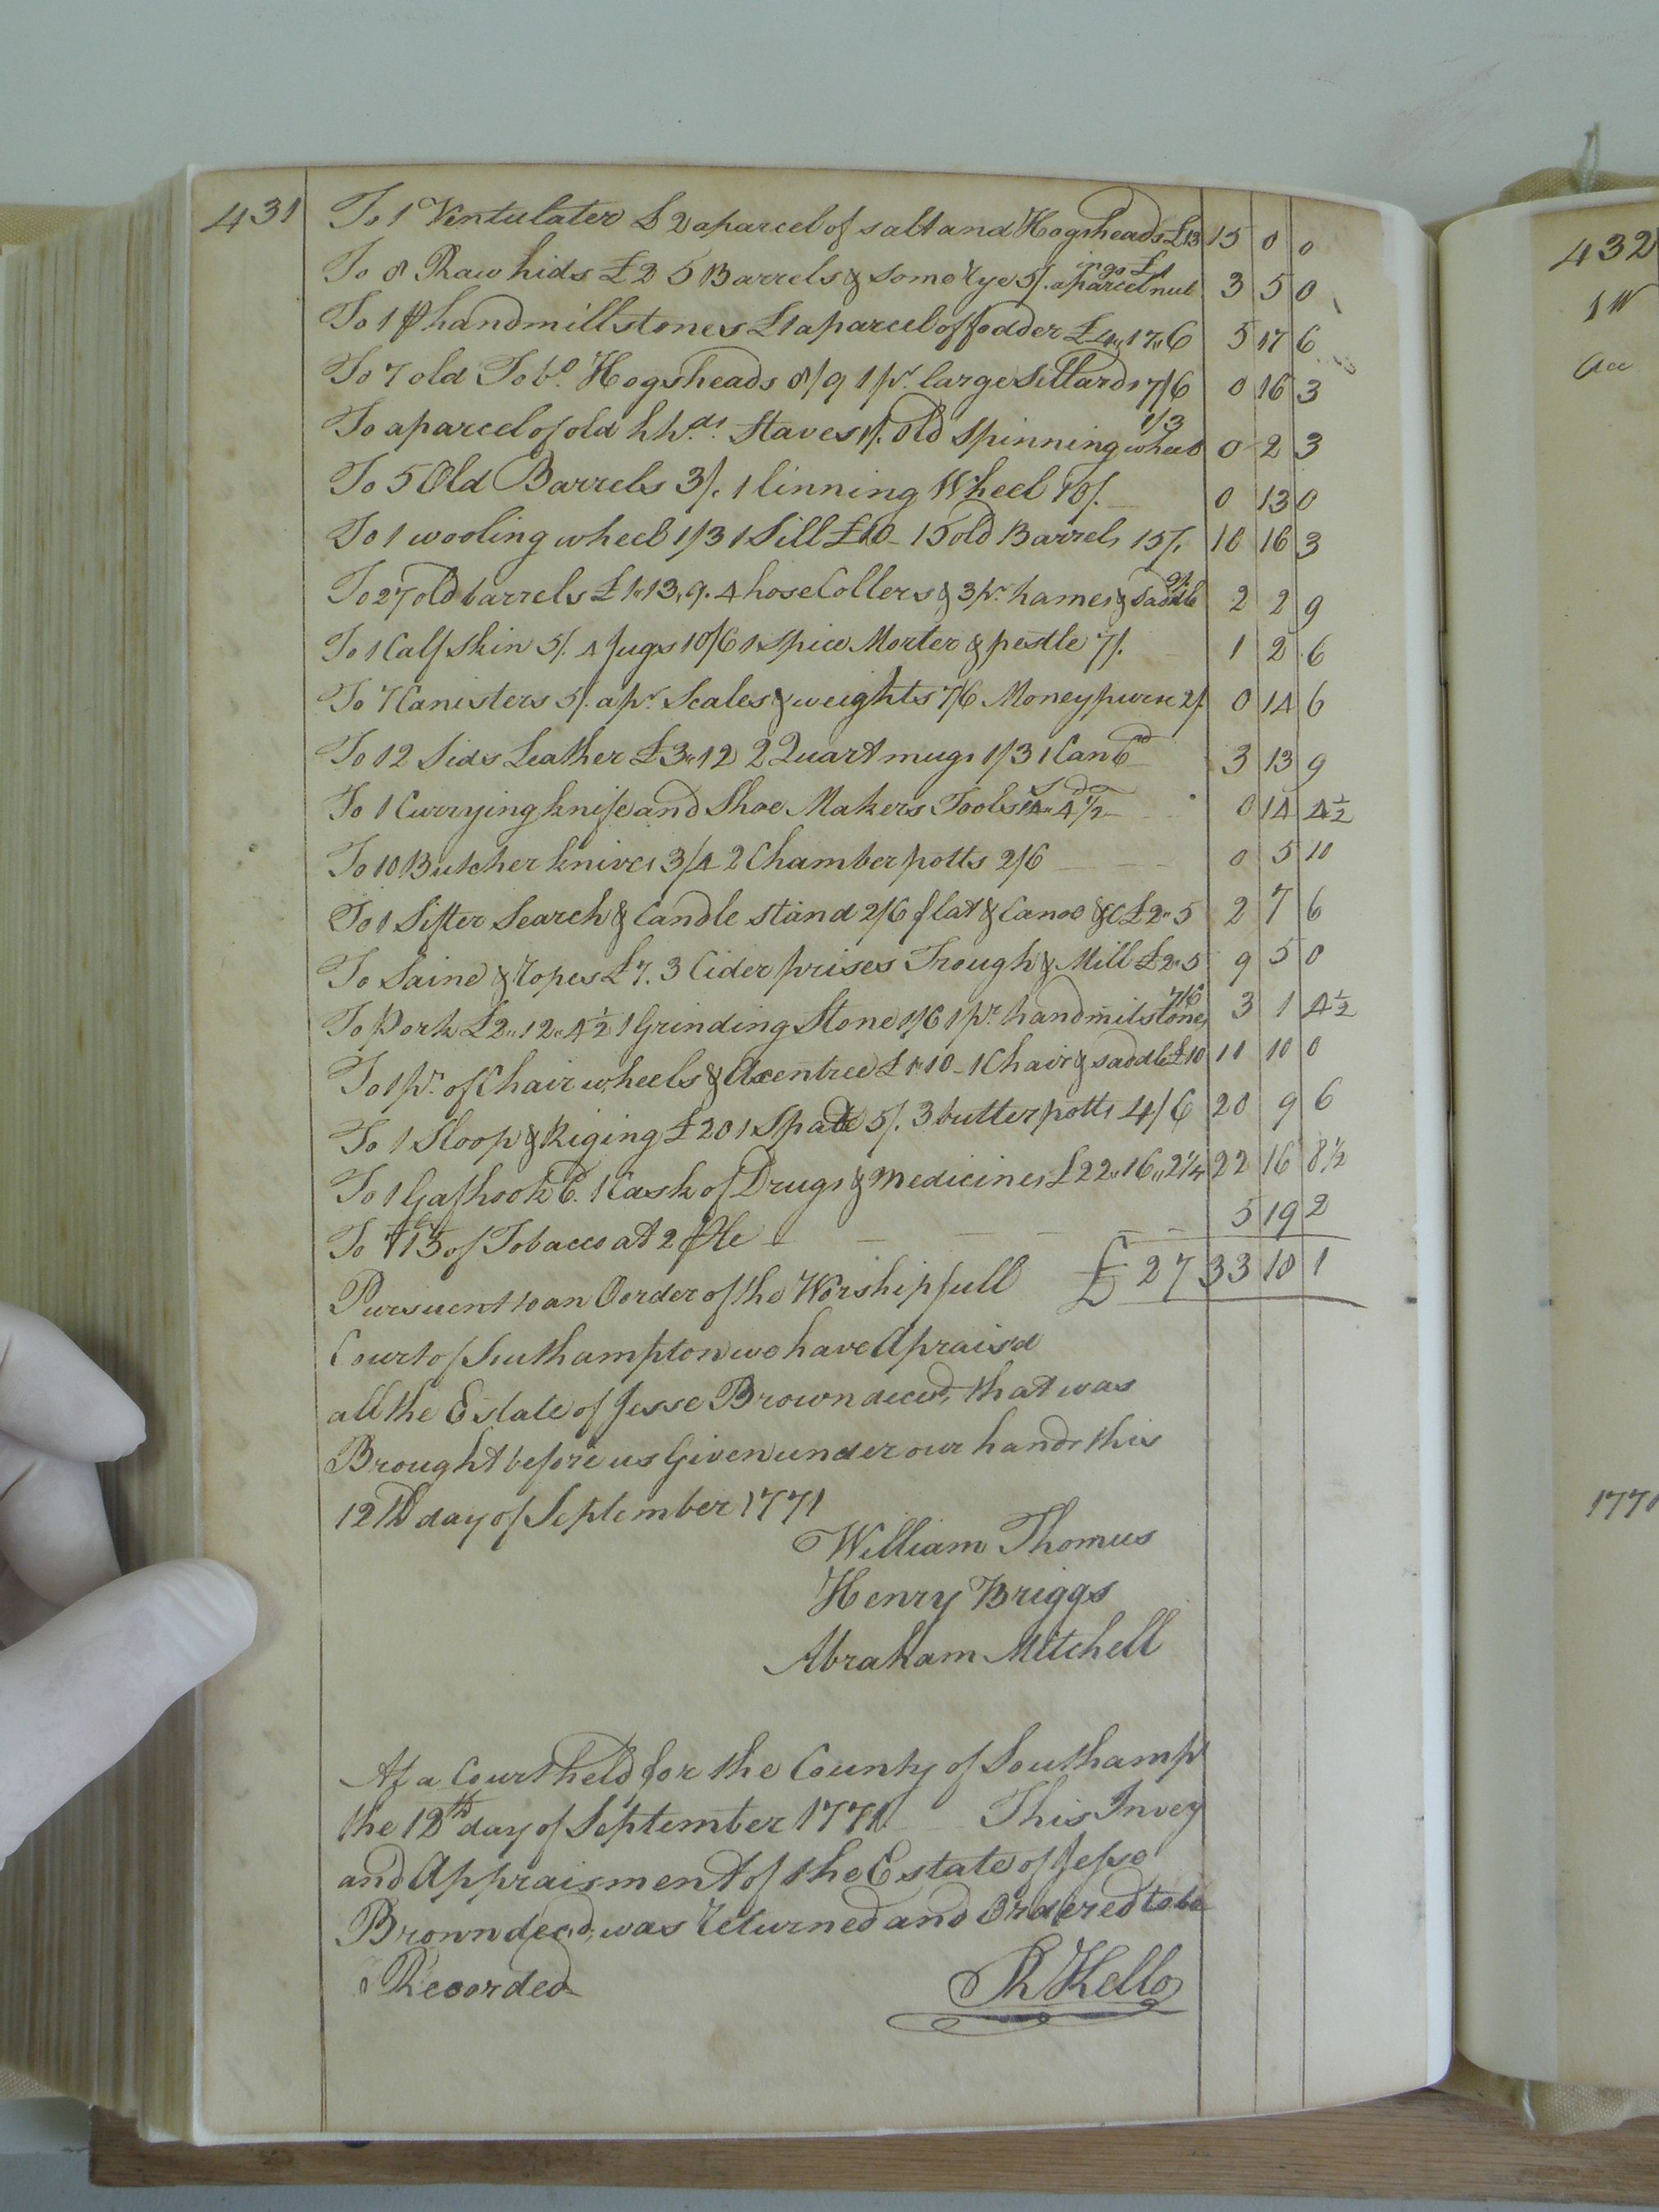 431
To 1 Ventulater £2 a parcel of salt and Hogsheads £13 15 0 0
To 8 Raw hids £2 5 Barrels & some Rye 5/. a parcel nub ings £1 3 5 0
To 1 p handmillstones £1 a parcel of fodder £4"17"6 5 17 6
To 7 old Tobo. Hogsheads 8/9 1 pr. large Stillards 7/6 0 16 3
To a parcel of old hhds. Staves 1/. Old Spinning wheel 1/3 0 2 3
To 5 Old Barrels 3/. 1 linning Wheel 10/. 0 13 0
To 1 wooling wheel 1/3 1 Sill £10 - 15 old Barrels 15/. 10 16 3
To 27 old barrels £1"13"9. 4 hose Collers & 3 pr. hames & Saddle 9/. 2 2 9
To 1 Calf Skin 5/. 4 Jugs 10/6 1 Spice Morter & pestle 7/. 1 2 6
To 7 Canisters 5/. a pr. Scales & weights 7/6 Money purse 2/. 0 14 6
To 12 Sids Leather £3"12 2 Quart mugs 1/3 1 Can 6d 3 13 9
To 1 Currying knife and Shoe Makers Tools 14s"4 1/2d 0 14 4 1/2
To 10 Butcher knives 3/4 2 Chamber potts 2/6 0 5 10
To 1 Sifter Search & Candle stand 2/6 flat & Canoe &C £2"5 2 7 6
To Saine & Ropes £7. 3 Cider prises Trough & Mill £2"5 9 5 0
To Pork £2"12"4 1/2 1 Grinding Stone 1/6 1 pr. handmilstones 7/6 3 1 4 1/2
To 1 pr. of Chair wheels & Axentree £1"10 - 1 Chair & saddle £10 11 10 0
To 1 Sloop & Riging £20 1 Spade 5/. 3 butter potts 4/6 20 9 6
To 1 Gafhook 6. 1 Cask of Drugs & Medicines £22"16"2 1/4 22 16 8 1/2
To 715 of Tobacco at 2 5 19 2
Pursuent to an Oorder of the Worshipfull £ 2733 10 1
Court of Southampton we have Apraisd
all the Estate of Jesse Brown decd, that was
Brought before us Given under our hands this
12Th day of September 1771
William Thomus
Henry Briggs
Abraham Mitchell
At a Court held for the County of Southampt
the 12th day of September 1771 This Invey
and Appraisment of the Estate of Jesse
Brown decd, was returned and Ordered to be
Recorded
R Kello
432
1771